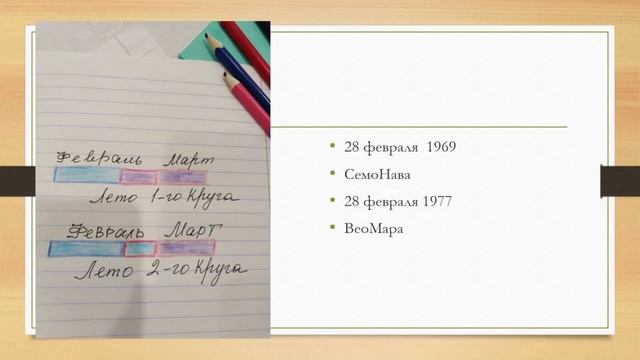 Февраль Март
Лето 1-го Круга
Февраль Март
Лето 2-го Круга
28 февраля 1969
СемоНава
28 февраля 1977
ВеоМара